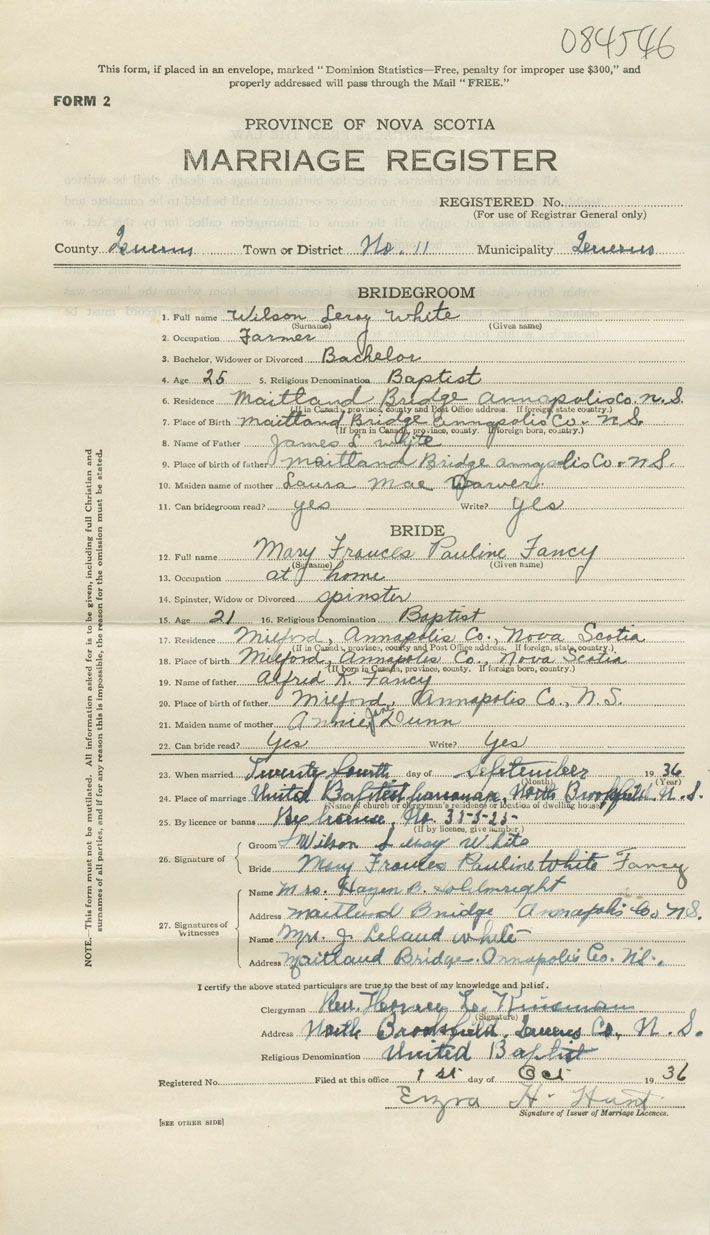 084546
This form, if placed in an envelope, marked " Dominion Statistics—Free, penalty for improper use $300," and
properly addressed will pass through the Mail " FREE."
FORM 2
PROVINCE OF NOVA SCOTIA
MARRIAGE REGISTER
REGISTERED No.
(For use of Registrar General only)
County Queens Town or District No. 11 Municipality Queens
BRIDEGROOM
1. Full name Wilson Leroy White
(Surname) (Given name)
2. Occupation Farmer
3. Bachelor, Widower or Divorced Bachelor
4. Age 25 5. Religious Denomination Baptist
6. Residence Maitland Bridge Annapolis Co. N.S.
(If in Canada, province, county and Post Office address. If foreign, state country.)
7. Place of Birth Maitland Bridge Annapolis Co. N.S.
(If born in Canada, province, county. If foreign born, country.)
8. Name of Father James L White
9. Place of birth of father Maitland Bridge Annapolis Co. N.S.
10. Maiden name of mother Laura Mae
11. Can bridegroom read? yes Write? yes
BRIDE
12. Full name Mary Frances Pauline Fancy
(Surname) (Given name)
13. Occupation at home
14. Spinster, Widow or Divorced spinster
15. Age 21 16. Religious Denomination Baptist
17. Residence Milford, Annapolis Co., Nova Scotia
(If in Canada, province, county and Post Office address. If foreign, state, country.)
18. Place of birth Milford, Annapolis Co., Nova Scotia
(If born in Canada, province, county. If foreign born, country.)
19. Name of father Alfred K. Fancy
20. Place of birth of father Milford, Annapolis Co., N.S.
21. Maiden name of mother Annie Jane Dunn
22. Can bride read? Yes Write? Yes
23. When married Twenty fourth day of September 19 36
(Month) (Year)
24. Place of marriage United Baptist Parsonage, North Brookfield N.S.
(Name of church or clergyman's residence or location of dwelling house)
25. By licence or banns By licence, No. 35-5-25-
(If by licence, give number.)
26. Signature of Groom Wilson Leroy White
Bride Mary Frances Pauline White Fancy
27. Signatures of Witnesses
Name Mrs. Hazen B.
Address Maitland Bridge Annapolis Co. N.S.
Name Mrs. J. Leland White
Address Maitland Bridge. Annapolis Co. N.S.
I certify above stated particulars are true to the best of my knowledge and belief.
Clergyman Rev. Horace L. Kinsman
(Signature)
Address North Brookfield, Queens Co., N.S.
Religious Denomination United Baptist
Registered No. Filed at this office 1st day of Oct 19 36
Ezra H. Hunt
Signature of Issuer of Marriage Licences.
[SEE OTHER SIDE]
NOTE.—This form must not be mutilated. All information asked for is to be given, including full Christian and
surnames of all parties, and if for any reason this is impossible, the reason for the omission must be stated.